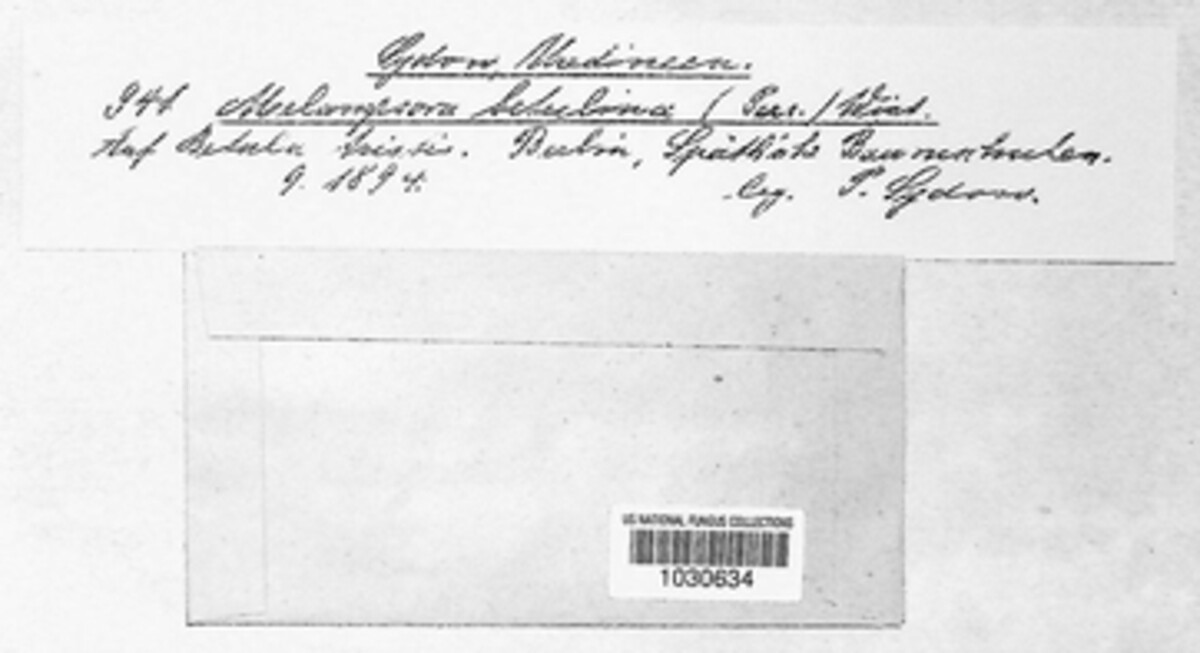 Sydow, Uredineen.
941 Melampsora betulina (Pers.) Wint.
Auf Betula tristis. Berlin, Späth's Baumschulen.
9. 1894. leg. P. Sydow.
US NATIONAL FUNGUS COLLECTIONS
1030634